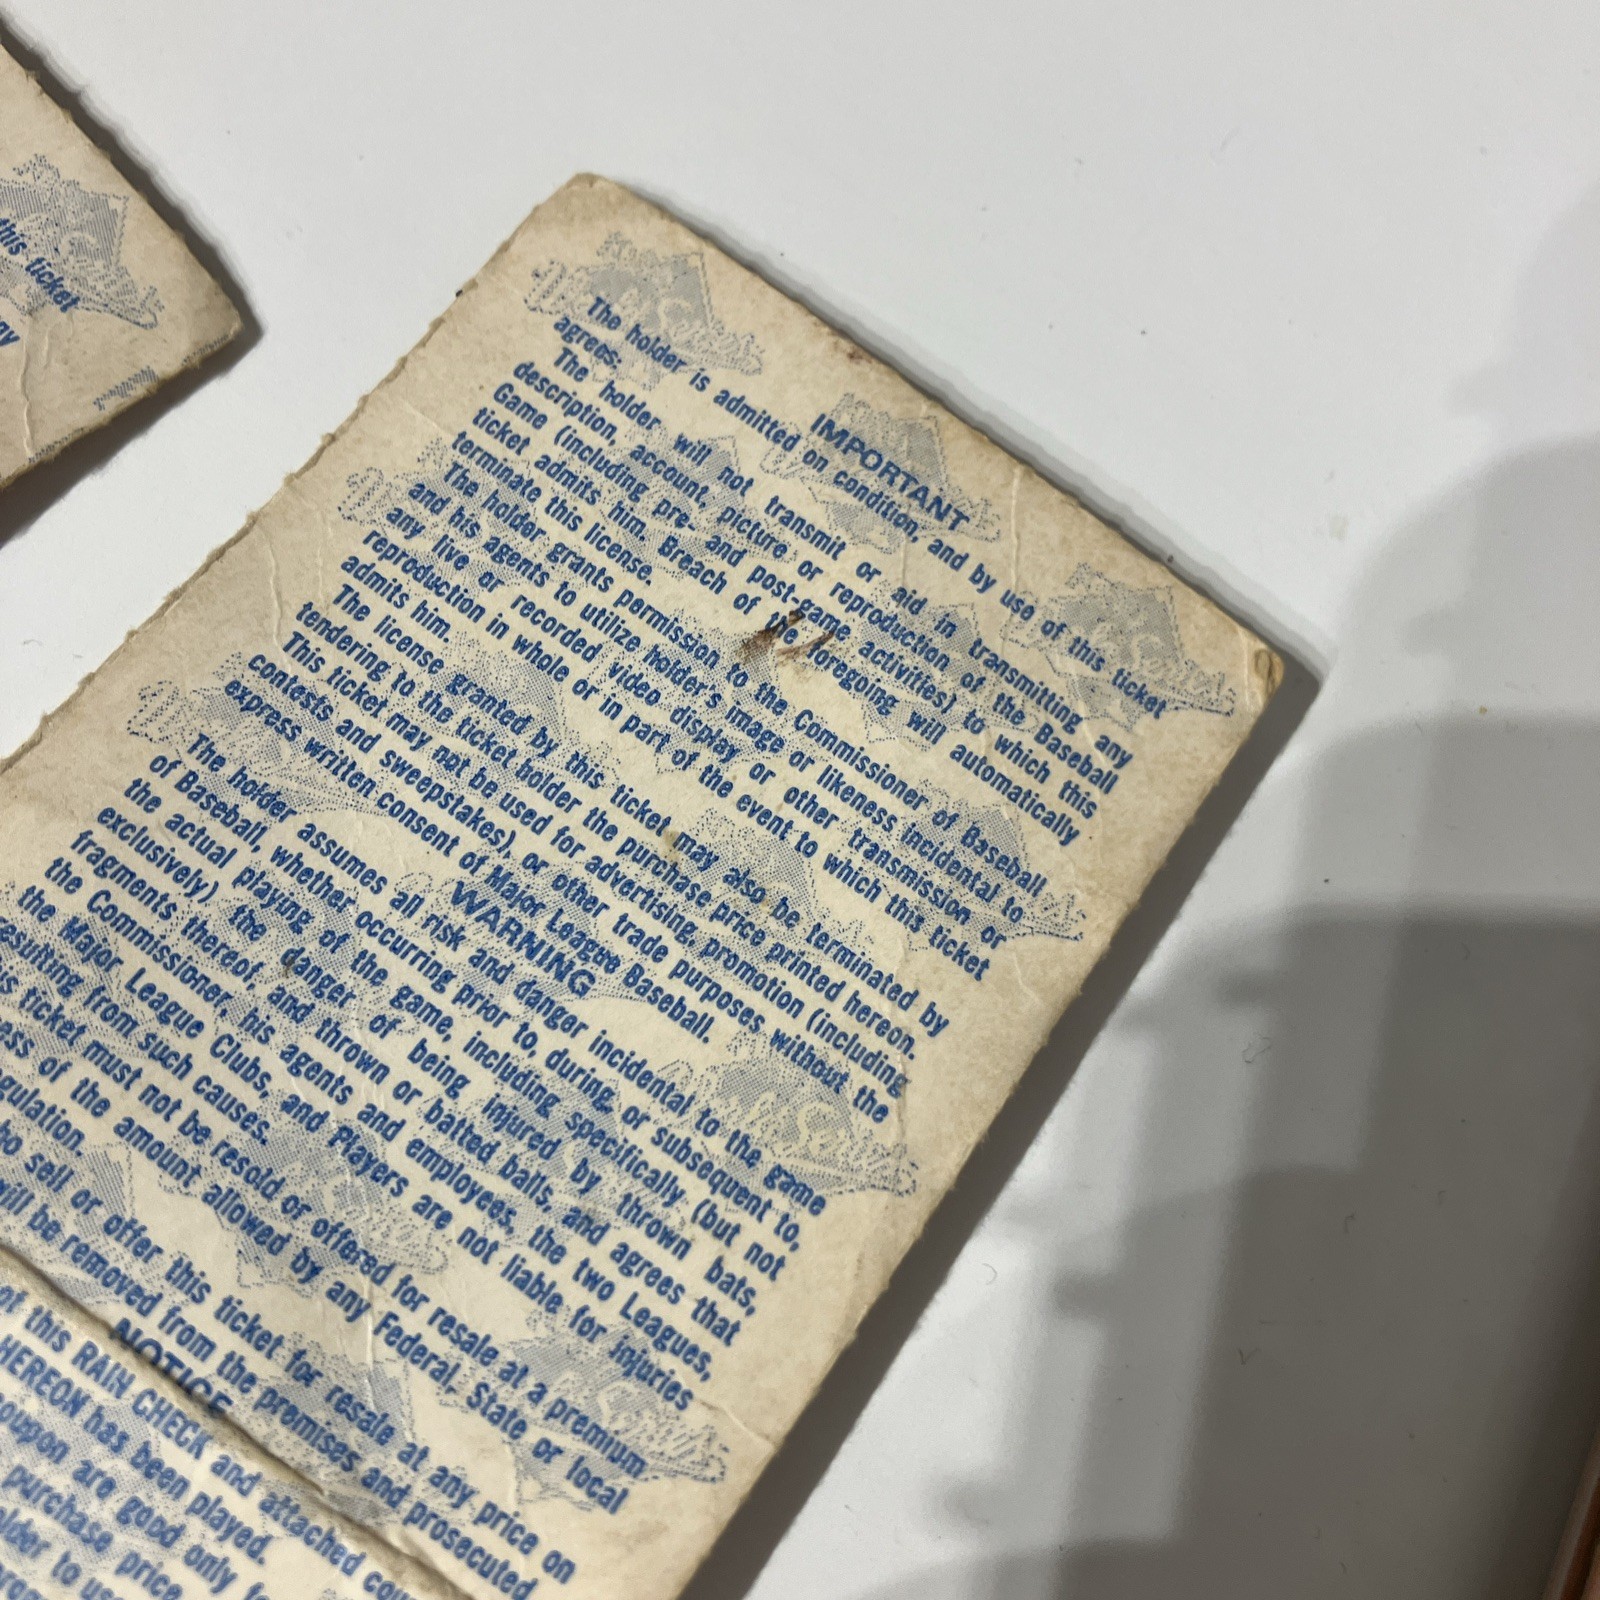 this ticket
IMPORTANT
The holder is admitted on condition, and by use of this ticket
agrees:
The holder will not transmit or aid in transmitting any
description, account, picture or reproduction of the Baseball
Game (including pre- and post-game activities) to which this
ticket admits him. Breach of the foregoing will automatically
terminate this license.
The holder grants permission to the Commissioner of Baseball
and his agents to utilize holder's image or likeness incidental to
any live or recorded video display or other transmission or
reproduction in whole or in part of the event to which this ticket
admits him.
The license granted by this ticket may also be terminated by
tendering to the ticket holder the purchase price printed hereon.
This ticket may not be used for advertising, promotion (including
contests and sweepstakes), or other trade purposes without the
express written consent of Major League Baseball.
WARNING
The holder assumes all risk and danger incidental to the game
of Baseball, whether occurring prior to, during, or subsequent to,
the actual playing of the game, including specifically (but not
exclusively) the danger of being injured by thrown bats,
fragments thereof, and thrown or batted balls, and agrees that
the Commissioner, his agents and employees, the two Leagues,
the Major League Clubs, and Players are not liable for injuries
resulting from such causes.
this ticket must not be resold or offered for resale at a premium
of the amount allowed by any Federal, State or local
sell or offer this ticket for resale at any price on
will be removed from the premises and prosecuted
NOTICE
this RAIN CHECK and attached
HEREON has been played.
are good only
purchase price
to
World Series